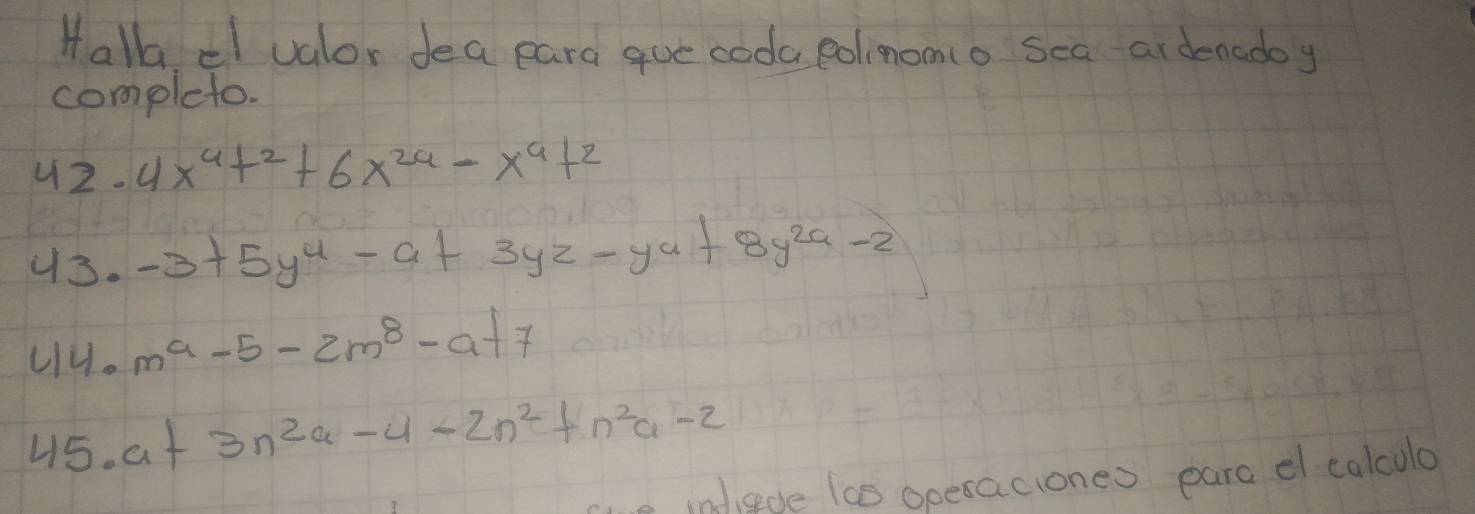 Halla el valor de a para que cada polinomio sea ardenado y
completo.
42. 4x^a+2 + 6x^2a - x^a+2
43. -3+5y^4 - a+ 3yz - ya + 8y^2a - 2
44. m^a - 5 - 2m^8 - a+7
45. a+ 3n^2a - 4 - 2n^2 + n^2a - 2
las operaciones para el calculo